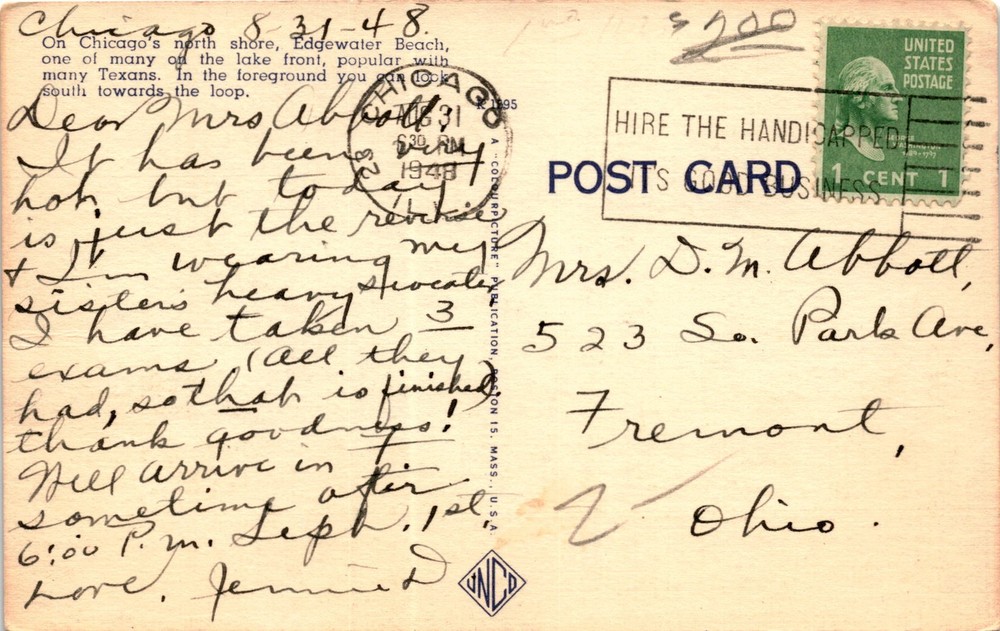 Chicago 8-31-48.
On Chicago's north shore, Edgewater Beach,
one of many on the lake front, popular with
many Texans. In the foreground you can look
south towards the loop.
K 1695
Dear Mrs Abbott:
It has been very
hot, but today
is just the reverse
+ I'm wearing my
sister's heavy sweater,
I have taken 3
exams (all they
had, so that is finished).
thank goodness!
Will arrive in F
sometime after
6:00 P.m. Sept. 1st.
Love, Jennie D
A "COLOURPICTURE" PUBLICATION, BOSTON 15, MASS., U.S.A.
UNCO
$2.00
CHICAGO
AUG 31
6 30 PM
1948
ILL.
23
HIRE THE HANDICAPPED
IT'S GOOD BUSINESS
UNITED
STATES
POSTAGE
WASHINGTON
1789-1797
1 CENT 1
POST CARD
Mrs. D. M. Abbott,
523 So. Park Ave,
Fremont,
Ohio.